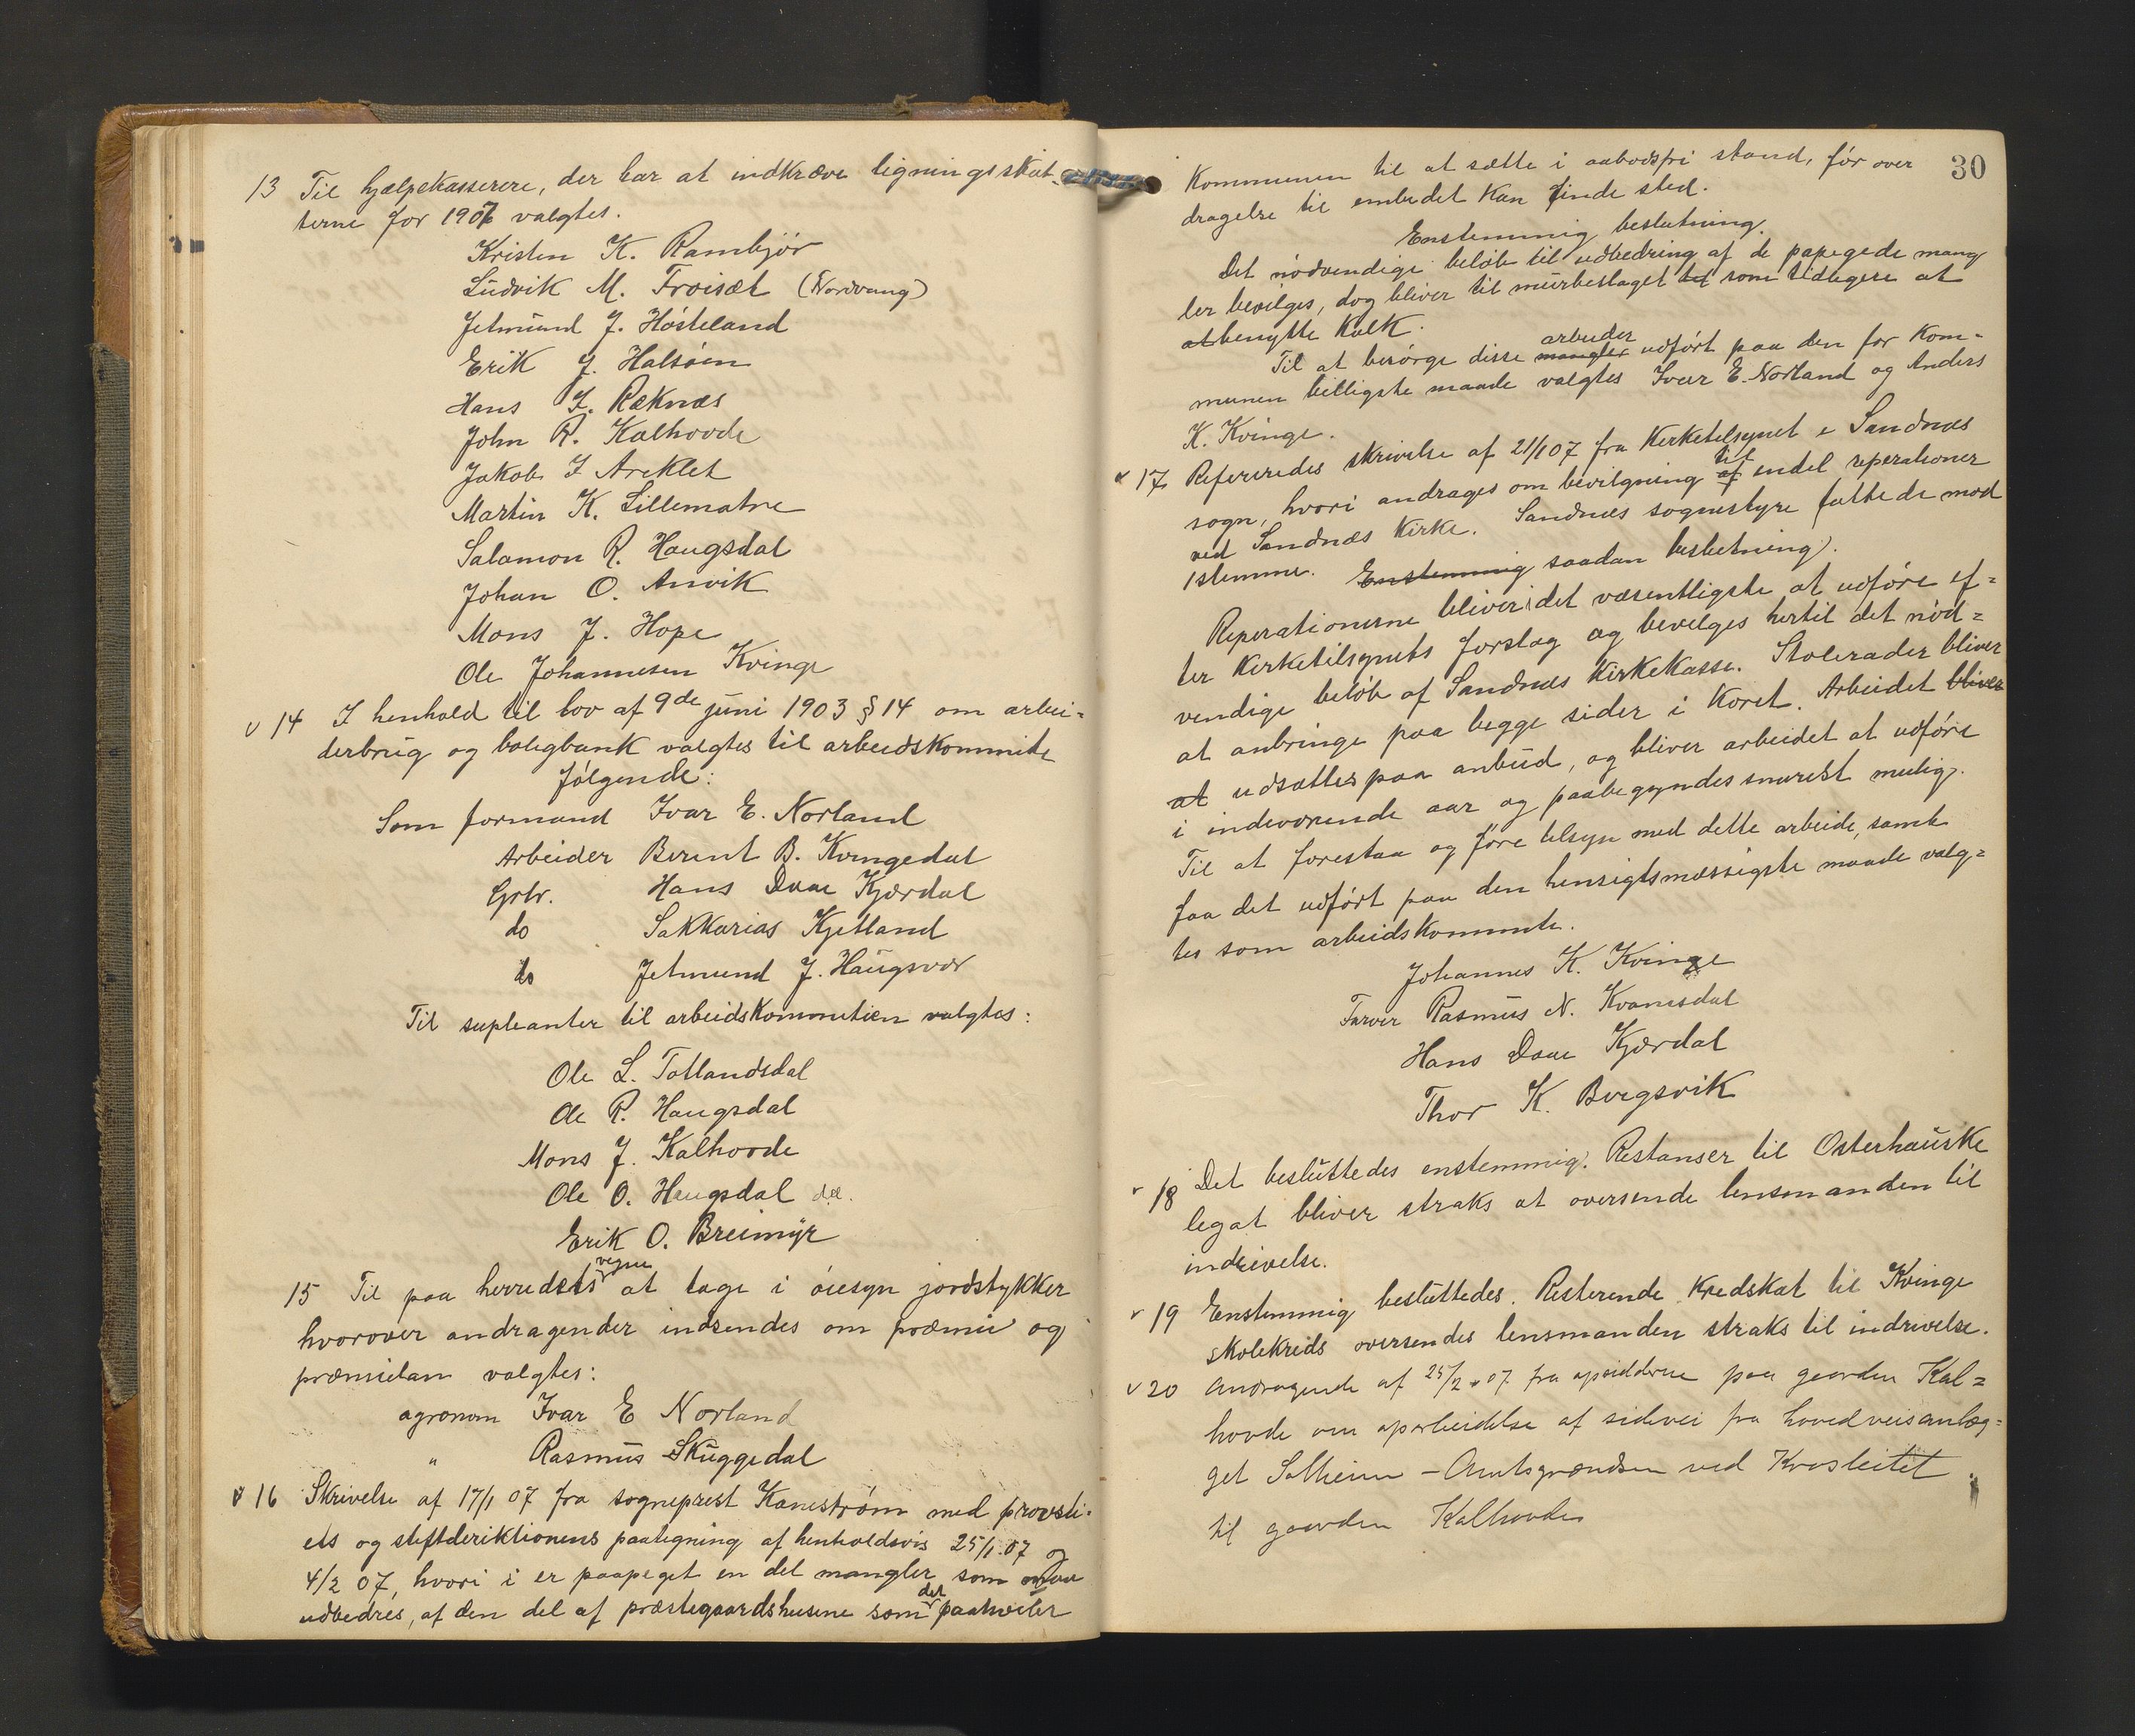 13 Til hjælpekasserere, der har at indkræve ligningsskat-
terne for 1907 valgtes.
Kristen K. Rambjør
Ludvik M. Froisæt (Nordvang)
Jetmund J. Hósteland
Erik J. Halsóen
Hans I. Ræknæs
John R. Kalhovde
Jakob I Areklet
Martin K. Lillematre
Salamon R. Haugsdal
Johan O. Anvik
Mons J. Hope
Ole Johannesen Kvinge
v 14 I henhold til lov af 9de juni 1903 § 14 om arbei-
derbrug og boligbank valgtes til arbeidskommite
fólgende:
Som formand Ivar E. Norland
Arbeider Berent B. Kvingedal
Grbr. Hans Daae Kjærdal
do Sakkarias Kjetland
do Jetmund J. Haugsvær
Til supleanter til arbeidskommitien valgtes:
Ole L. Totlandsdal
Ole R. Haugsdal
Mons J. Kalhovde
Ole O. Haugsdal
Erik O. Breimyr
15 Til paa herredets vegne at tage i óiesyn jordstykker
hvorover andragender indsendes om præmie og
præmielan valgtes:
agronom Ivar E Norland
" Rasmus Skuggedal
v 16 Skrivelse af 17/1 07 fra sogneprest Kanestrøm med provsti-
ets og stiftderiktionens paategning af henholdsvis 25/1.07 og
4/2 07, hvori i er paapeget en del mangler som maa
udbedres, af den del af præstegaardshusene som det paahviler
30
Kommunen til at sætte i aabodsfri stand, fór over
dragelse til embedet kan finde sted.
Enstemmig beslutning.
Det nódvendige belób til udbedring af de papegede mang
ler bevilges, dog bliver til murbeslaget til som tidligere at
at benytte kalk.
Til at besórge disse mangler arbeider udfórt paa den for kom-
munen billigste maade valgtes Ivar E. Norland og Anders
K. Kvinge.
v 17 Refereredes skrivelse af 21/1 07 fra Kirketilsynet i Sandnes
sogn, hvori andrages om bevilgning af til endel reperationer
ved Sandnæs Kirke. Sandnæs sognestyre fattede mod
1 stemme. Enstemmig saadan beslutning).
Reperationerne bliver i det væsentligste at udfóre ef=
ter Kirketilsynets forslag og bevilges hertil det nód=
vendige belób af Sandnæs Kirkekasse. Stolerader bliver
at anbringe paa begge sider i koret. Arbeidet bliver
at udsættes paa anbud, og bliver arbeidet at udfóre
i indeværende aar og paabegyndes snarest mulig.
Til at forestaa og fóre tilsyn med dette arbeide, samt
faa det udfórt paa den hensigtsmæssigste maade valg=
tes som arbeidskommite.
Johannes K. Kvinge
Farver Rasmus N. Kvamsdal
Hans Daae Kjærdal
Thor K. Bergsvik
v 18 Det besluttedes enstemmig. Restanser til Osterhauske
legat bliver straks at oversende lensmanden til
indrivelse.
v 19 Enstemmig besluttedes. Resterende kredskat til Kvinge
skolekreds oversendes lensmanden straks til indrivelse.
v 20 Andragende af 25/2 07 fra opsidderne paa gaarden Kal=
hovde om oparbeidelse af sidevei fra hovedveisanlæg=
get Solheim - Amtsgrændsen ved Krosleitet
til gaarden Kalhovde